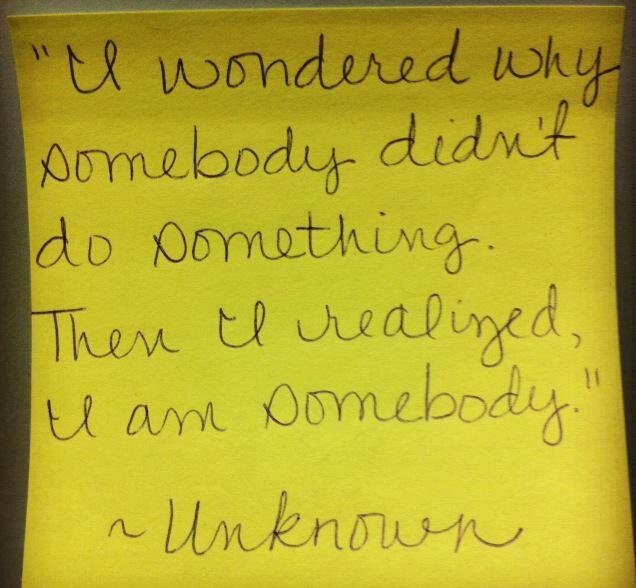 "I wondered why
somebody didn't
do something.
Then I realized,
I am somebody."
~Unknown